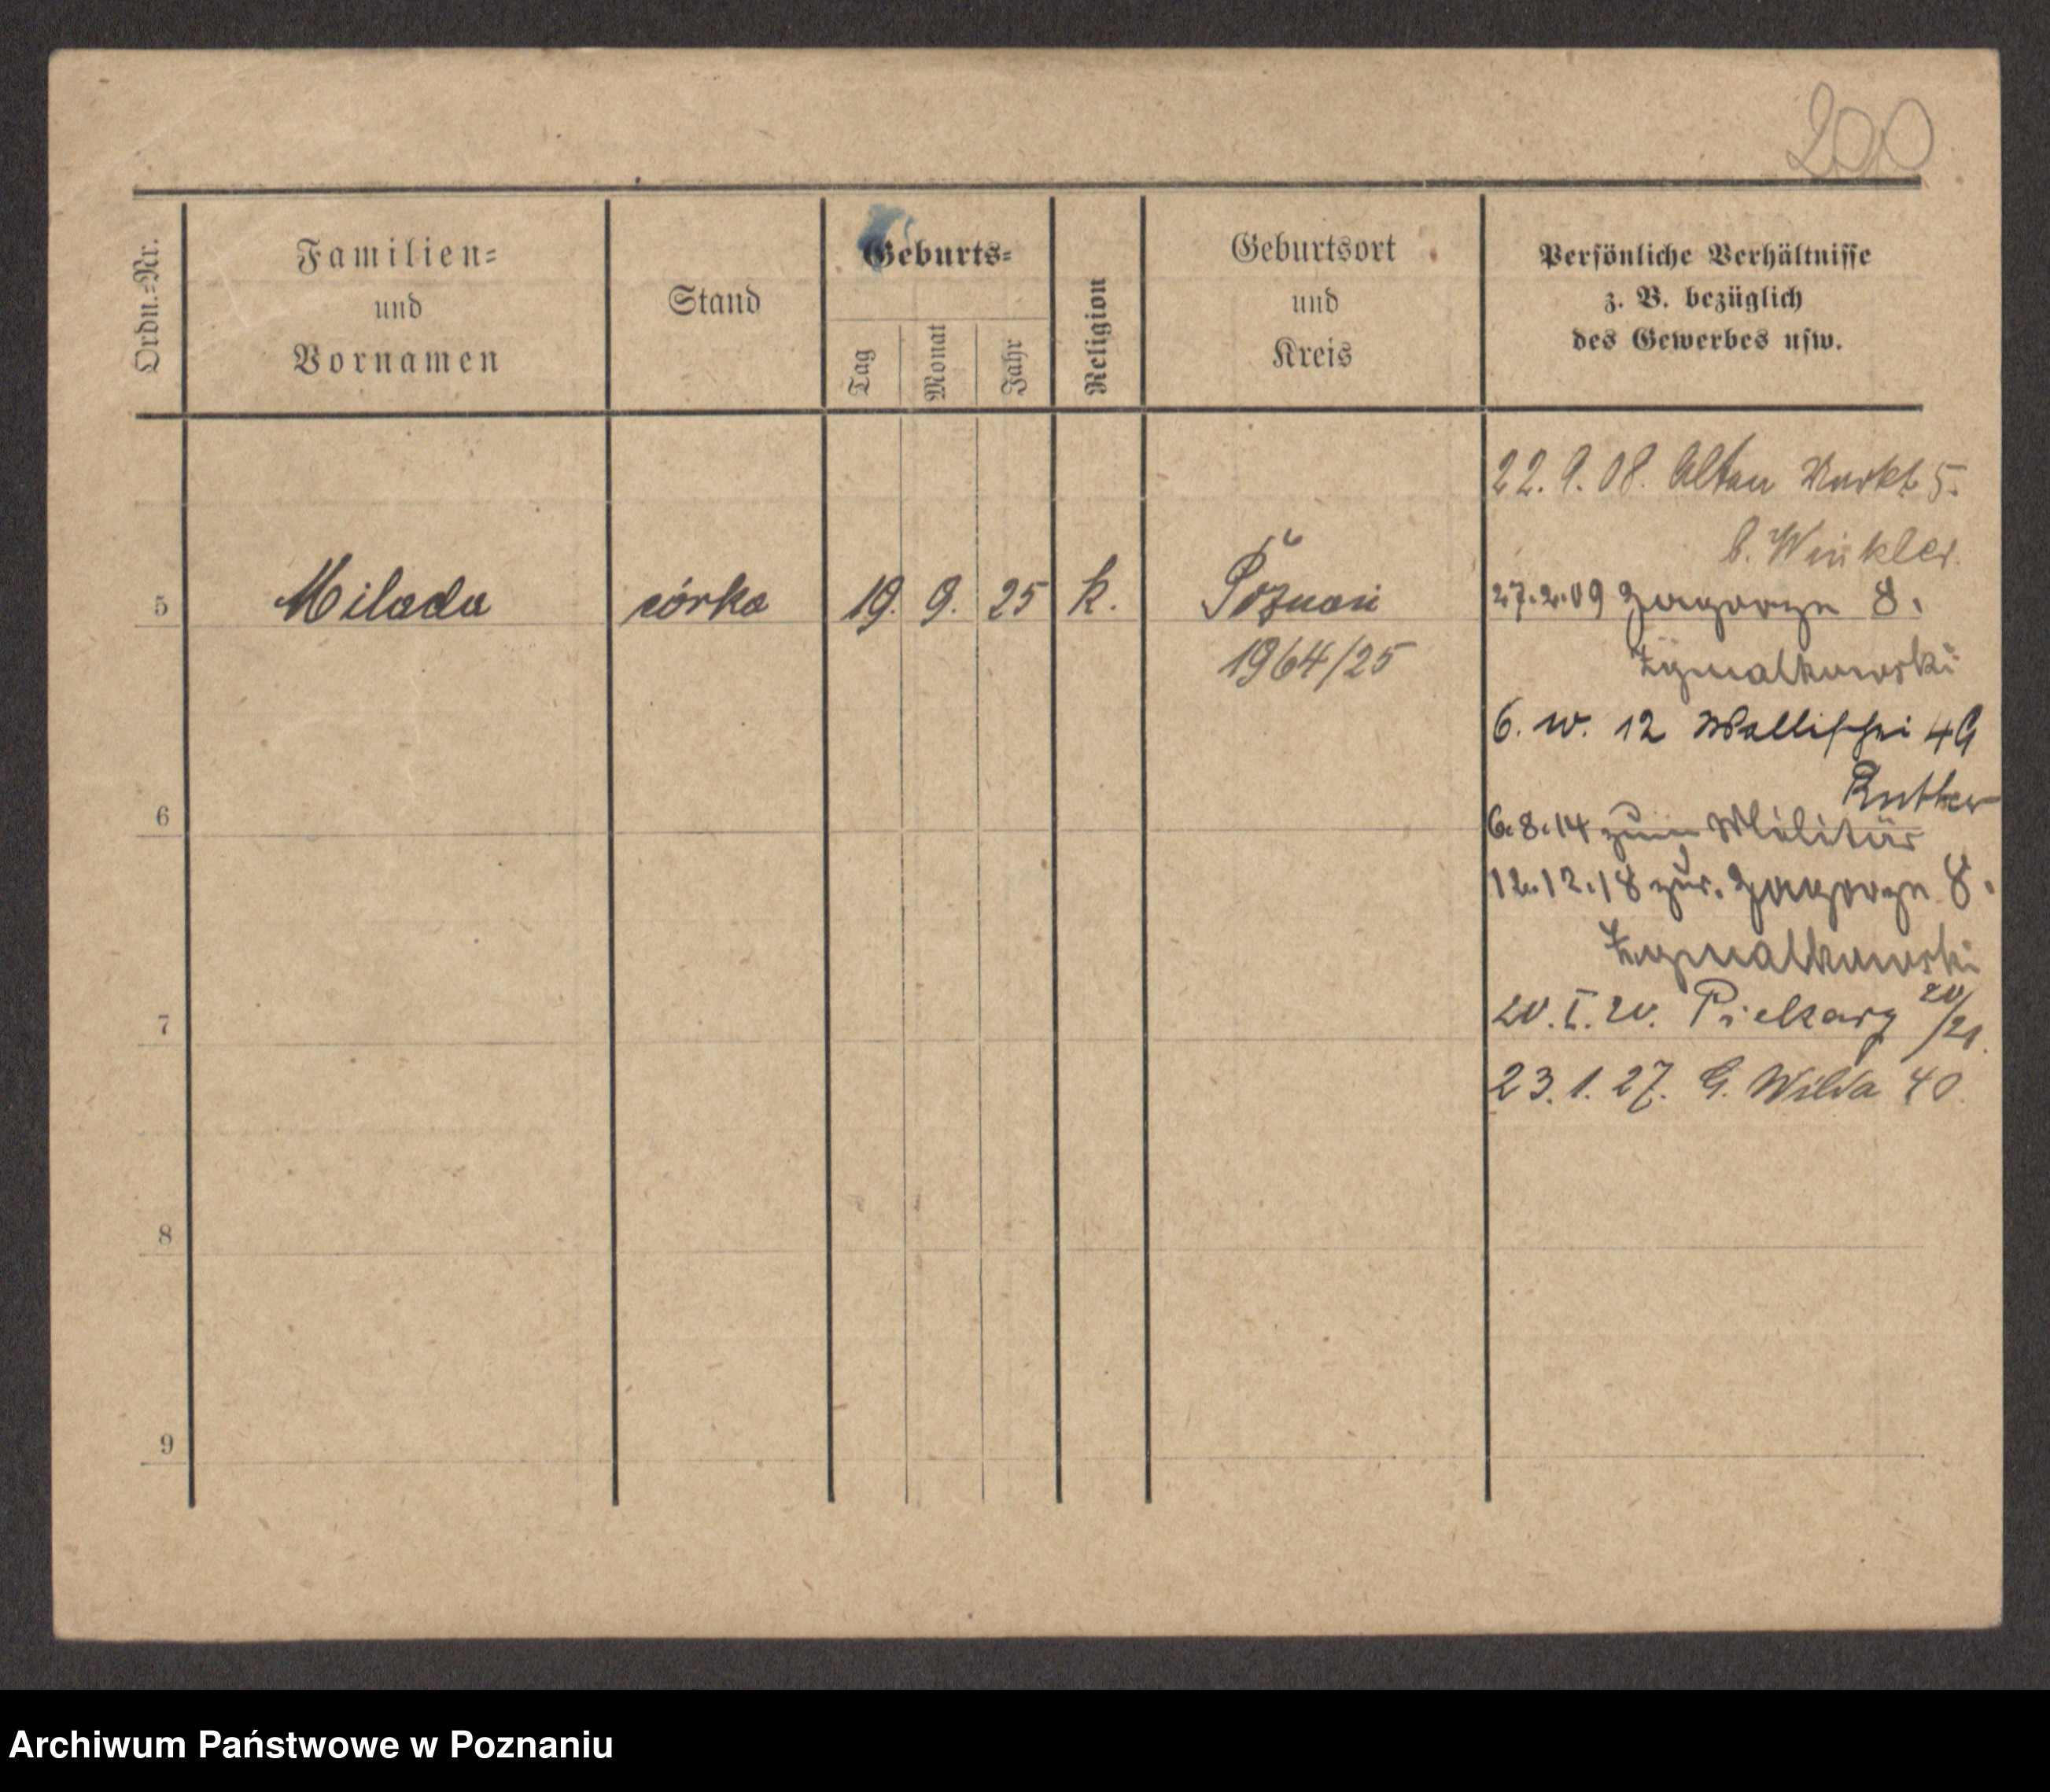 200
Ordn.-Nr.
Familien-
und
Vornamen
Stand
Geburts-
Tag
Monat
Jahr
Religion
Geburtsort
und
Kreis
Persönliche Verhältnisse
z. B. bezüglich
des Gewerbes usw.
22. 9. 08. Alten Markt 5.
b. Winkler.
5 Milada córka 19. 9. 25 k. Poznań
1964/25
27.2.09 Zagorze 8.
6. 12 Wallischei 49
6
6.8.14 zum Militär
12.12.18 zur. Zagorze 8.
7
20. I. 20. Piekary 20/21.
23. 1. 27. G. Wilda 40.
8
9
Archiwum Państwowe w Poznaniu